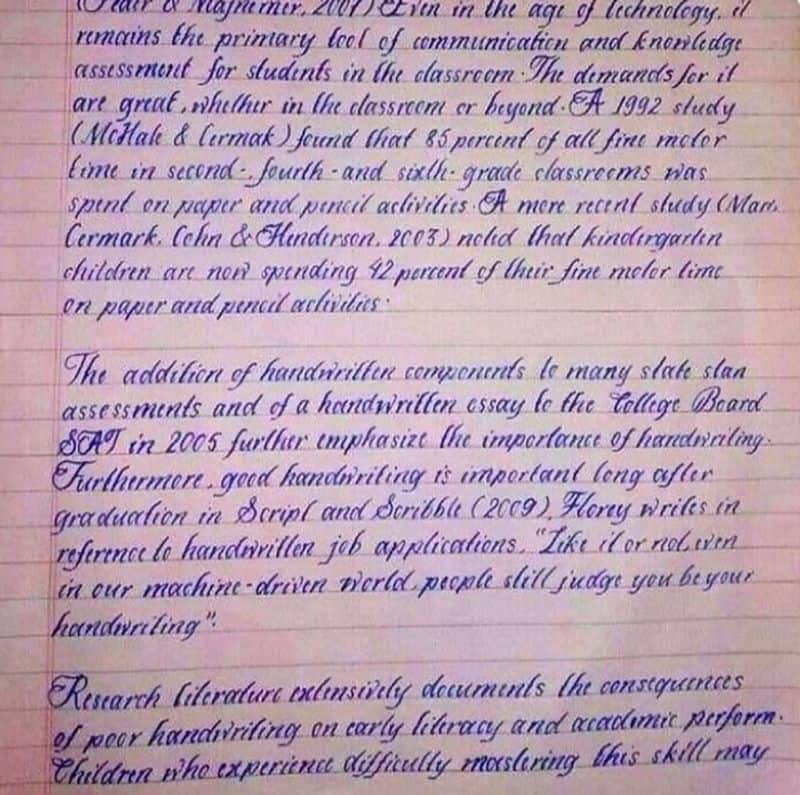 & Majnemer, 2001) Even in the age of technology, it
remains the primary tool of communication and knowledge
assessment for students in the classroom. The demands for it
are great, whether in the classroom or beyond. A 1992 study
(McHale & Cermak) found that 85 percent of all fine motor
time in second-, fourth-and sixth-grade classrooms was
spent on paper and pencil activities. A more recent study (Marr,
Cermark, Cohn & Henderson, 2003) noted that kindergarten
children are now spending 42 percent of their fine motor time
on paper and pencil activities.
The addition of handwritten components to many state stan
assessments and of a handwritten essay to the College Board
SAT in 2005 further emphasize the importance of handwriting.
Furthermore, good handwriting is important long after
graduation in Script and Scribble (2009), Florey writes in
reference to handwritten job applications, "Like it or not, even
in our machine-driven world, people still judge you be your
handwriting".
Research literature extensively documents the consequences
of poor handwriting on early literacy and academic perform.
Children who experience difficulty mastering this skill may